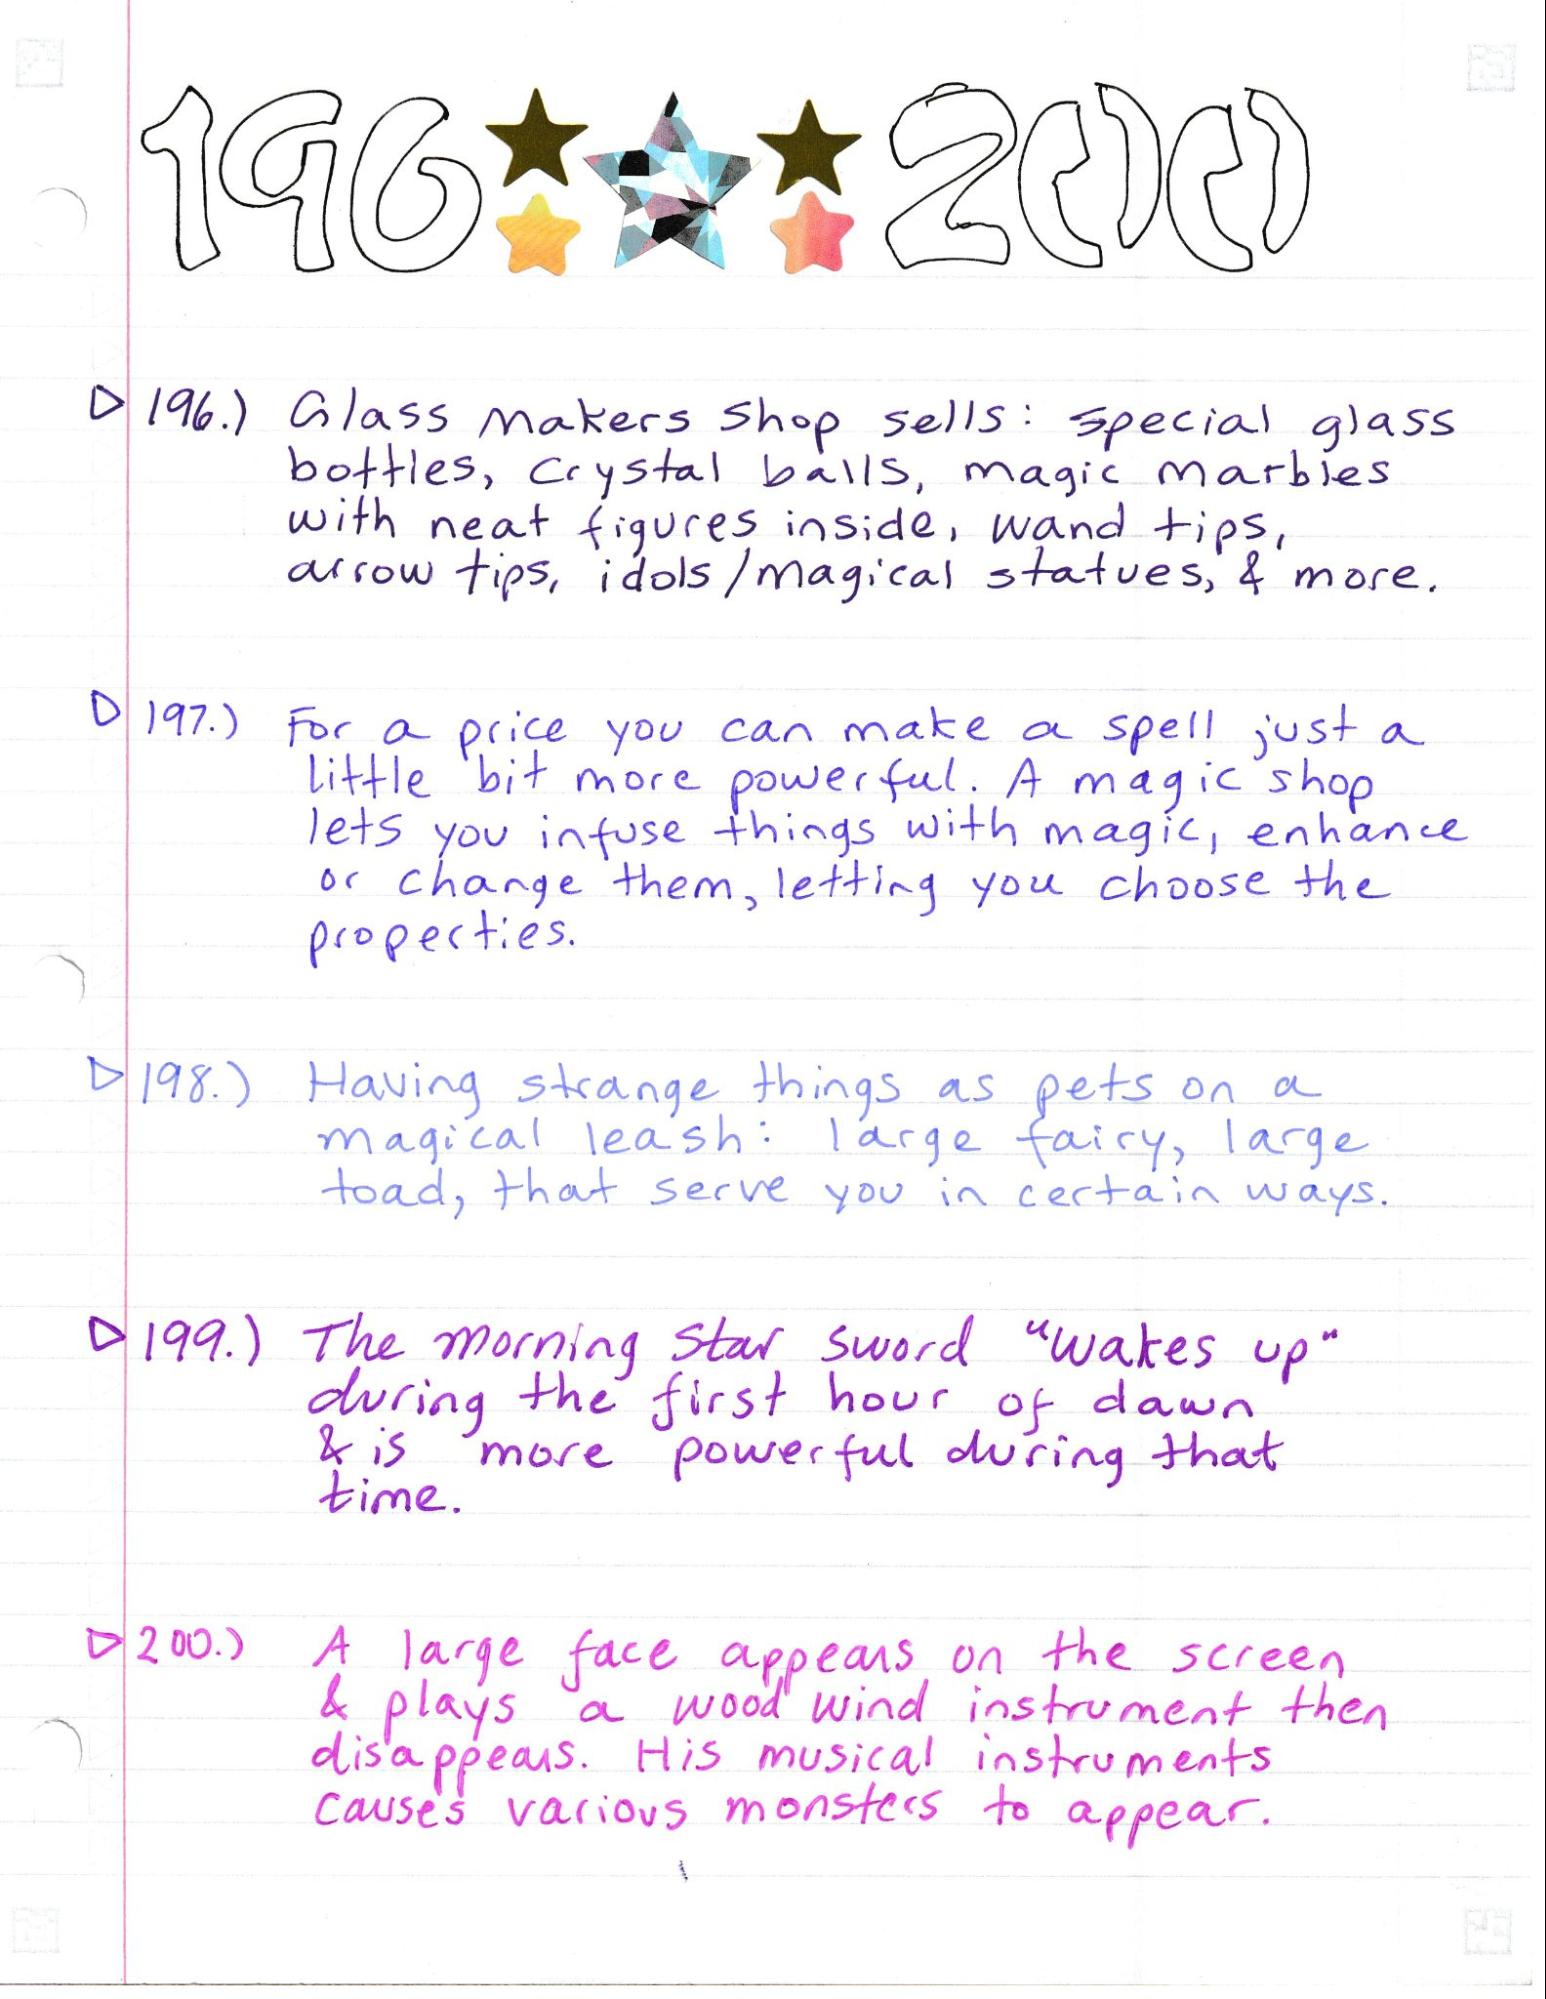 196 200
196.) Glass Makers Shop sells: special glass
bottles, crystal balls, magic marbles
with neat figures inside, wand tips,
arrow tips, idols/magical statues, & more.
197.) For a price you can make a spell just a
little bit more powerful. A magic shop
lets you infuse things with magic, enhance
or change them, letting you choose the
properties.
198.) Having strange things as pets on a
magical leash: large fairy, large
toad, that serve you in certain ways.
199.) The Morning Star Sword "wakes up"
during the first hour of dawn
& is more powerful during that
time.
200.) A large face appears on the screen
& plays a wood wind instrument then
disappears. His musical instruments
causes various monsters to appear.